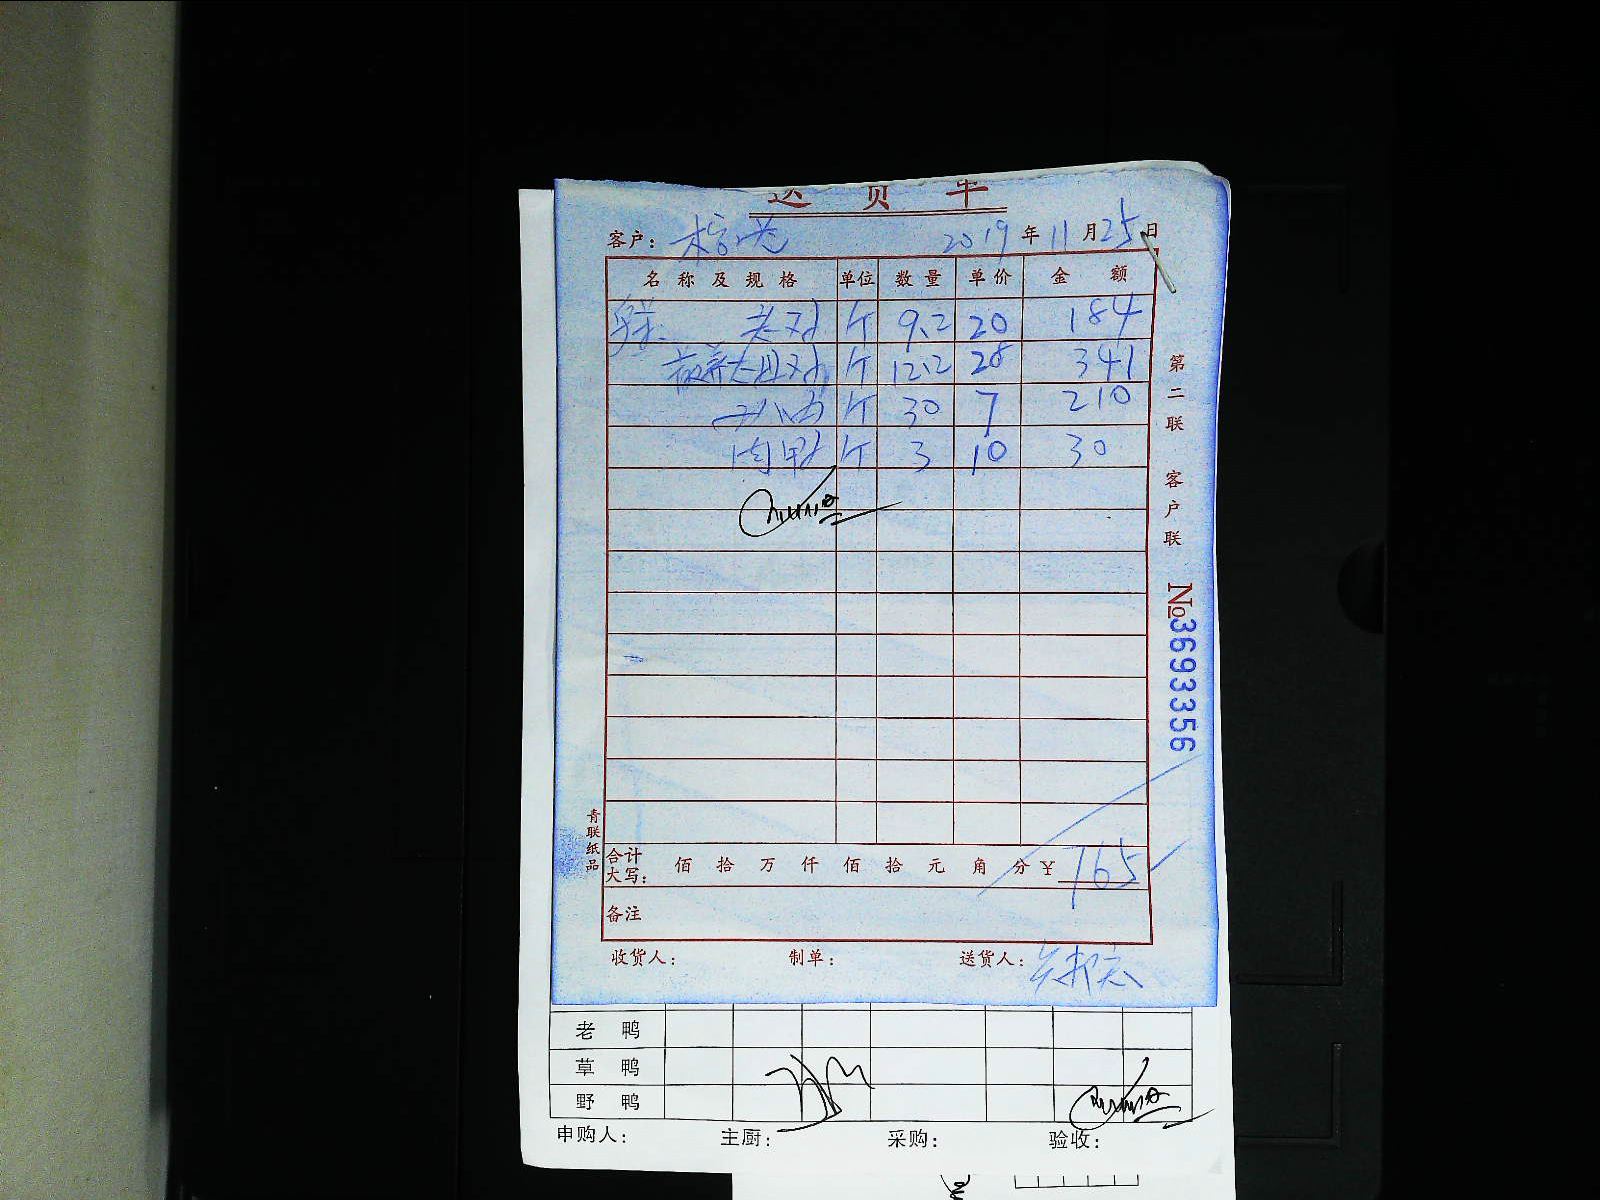 送货单
客户: 2019年11月25日
名称及规格 单位 数量 单价 金额
老鸡 斤 9.2 20 184
散养大母鸡 斤 12.2 28 341
斤 30 7 210
肉鸭 斤 3 10 30
第二联 客户联
№3693356
青联纸品
合计大写: 佰 拾 万 仟 佰 拾 元 角 分 ¥ 765
备注
收货人: 制单: 送货人:
老鸭
草鸭
野鸭
申购人: 主厨: 采购: 验收: